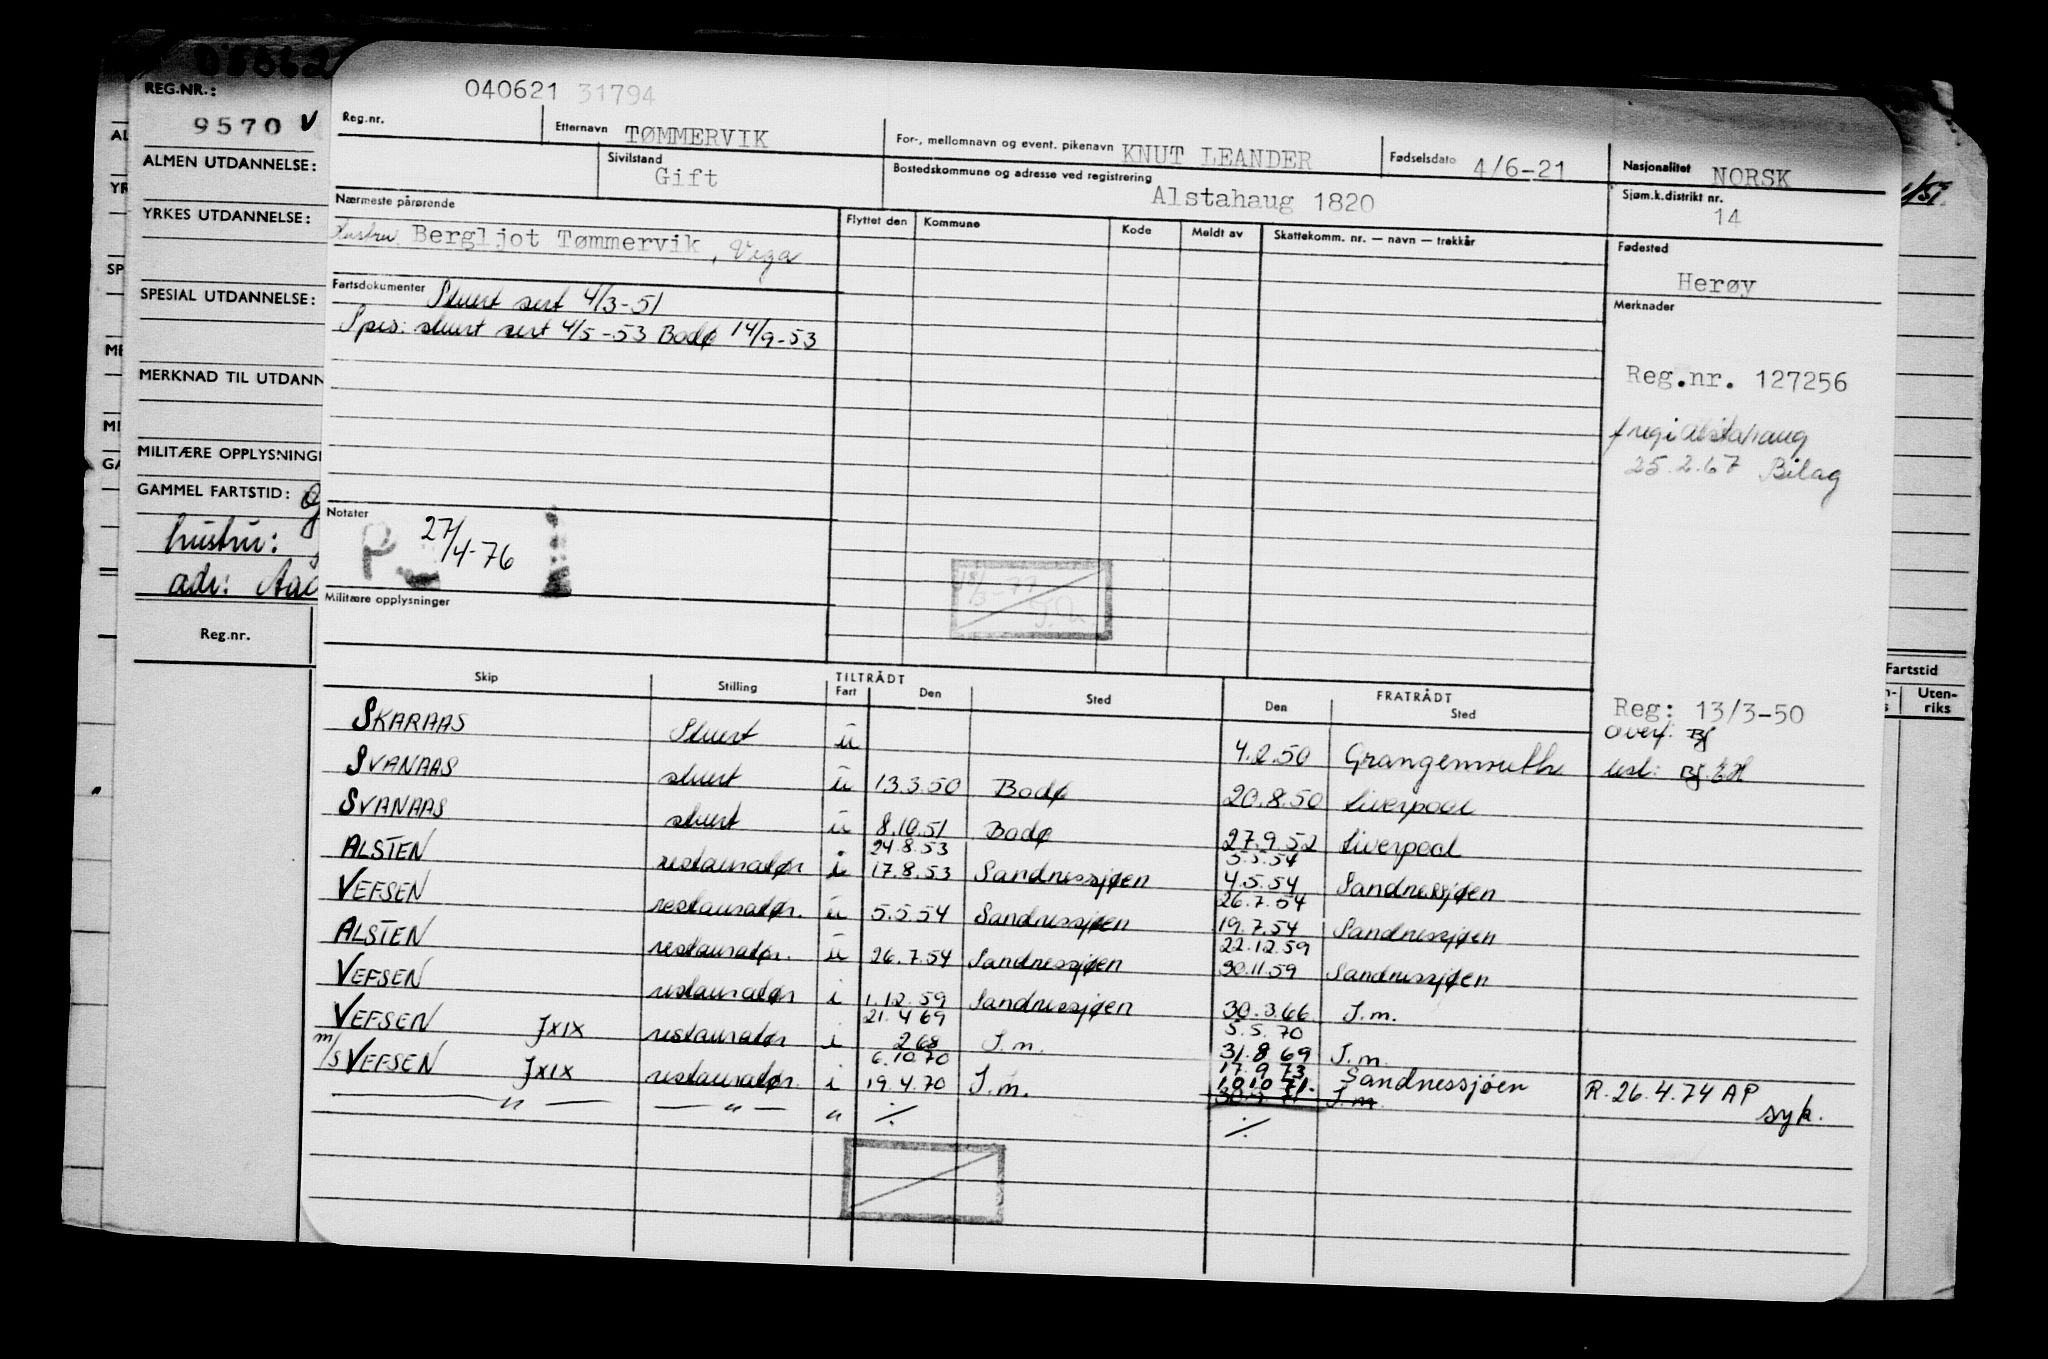 REG.NR.:
9570 V
ALMEN UTDANNELSE:
YRKES UTDANNELSE:
SPESIAL UTDANNELSE:
MERKNAD TIL UTDANN
MILITÆRE OPPLYSNINGE
GAMMEL FARTSTID:
hustru:
adr:
Reg.nr.
040621 31794
Reg.nr.
Etternavn TØMMERVIK
For-, mellomnavn og event. pikenavn KNUT LEANDER
Fødselsdato 4/6-21
Nasjonalitet NORSK
Sivilstand
Gift
Bostedskommune og adresse ved registrering
Alstahaug 1820
Sjøm.k.distrikt nr.
14
Nærmeste pårørende
Hustru Bergljot Tømmervik, Vega
Flyttet den Kommune Kode Meldt av Skattekomm. nr. — navn — trekkår
Fødested
Herøy
Fartsdokumenter Stuert sert 4/3-51
Spes: stuert sert 4/5-53 Bodø 14/9-53
Merknader
Reg.nr. 127256
25.2.67 Bilag
Notater
P 27/4-76
Militære opplysninger
Reg: 13/3-50
Overf: Bj
Skip Stilling TILTRÅDT Fart Den Sted FRATRÅDT Den Sted
SKARAAS Stuert u 4.2.50 Grangemouth
SVANAAS stuert u 13.3.50 Bodø 20.8.50 Liverpool
SVANAAS stuert u 8.10.51 Bodø 27.9.52 Liverpool
24.8.53 5.5.54
ALSTEN restauratør i 17.8.53 Sandnessjøen 4.5.54 Sandnessjøen
26.7.54
VEFSEN restauratør. u 5.5.54 Sandnessjøen 19.7.54 Sandnessjøen
22.12.59
ALSTEN restauratør. u 26.7.54 Sandnessjøen 30.11.59 Sandnessjøen
VEFSEN restauratør i 1.12.59 Sandnessjøen 30.3.66 S.m.
21.4.69 5.5.70
VEFSEN JXIX restauratør i 2.68 S.m. 31.8.69 S.m.
6.10.70 17.9.73 Sandnessjøen
m/s VEFSEN JXIX restauratør. i 19.4.70 S.m. 1.10.71. S.m.
— " — — " — " ./. ./.
R. 26.4.74 AP
syk.
Fartstid
Uten-
riks